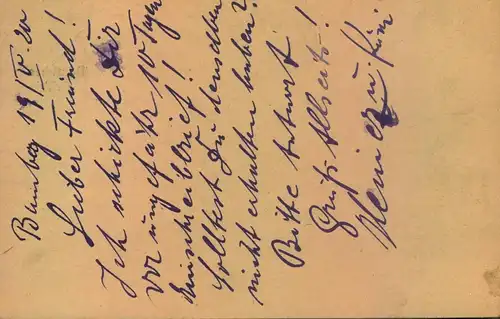 Bamberg 19/IV. 20
Lieber Freund!
Ich schickte Dir
vor ungefähr 10 Tagen
Einschreibbrief!
Solltest Du denselben
nicht erhalten haben?
Bitte Antwort!
Gruß Allseits!